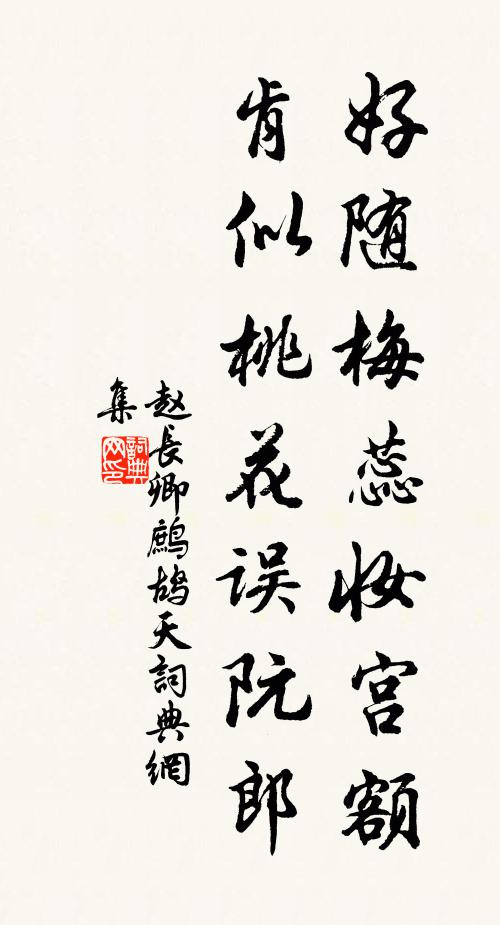 好随梅蕊妆宫额
肯似桃花误阮郎
赵長卿鷓鴣天詞典網
集
詞典网印